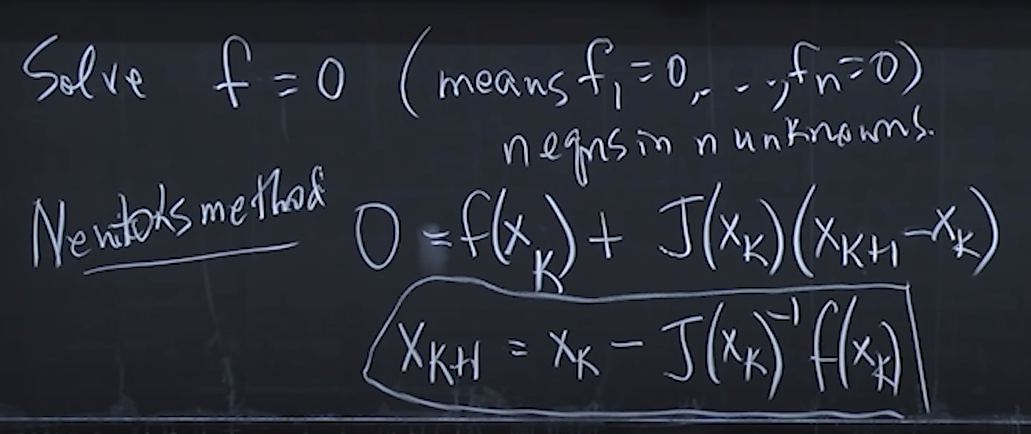 Solve f = 0 (means f₁ = 0, ..., fn = 0)
n eqns in n unknowns.
Newton's method 0 = f(xK) + J(xK)(xK+1 - xK)
xK+1 = xK - J(xK)⁻¹ f(xK)